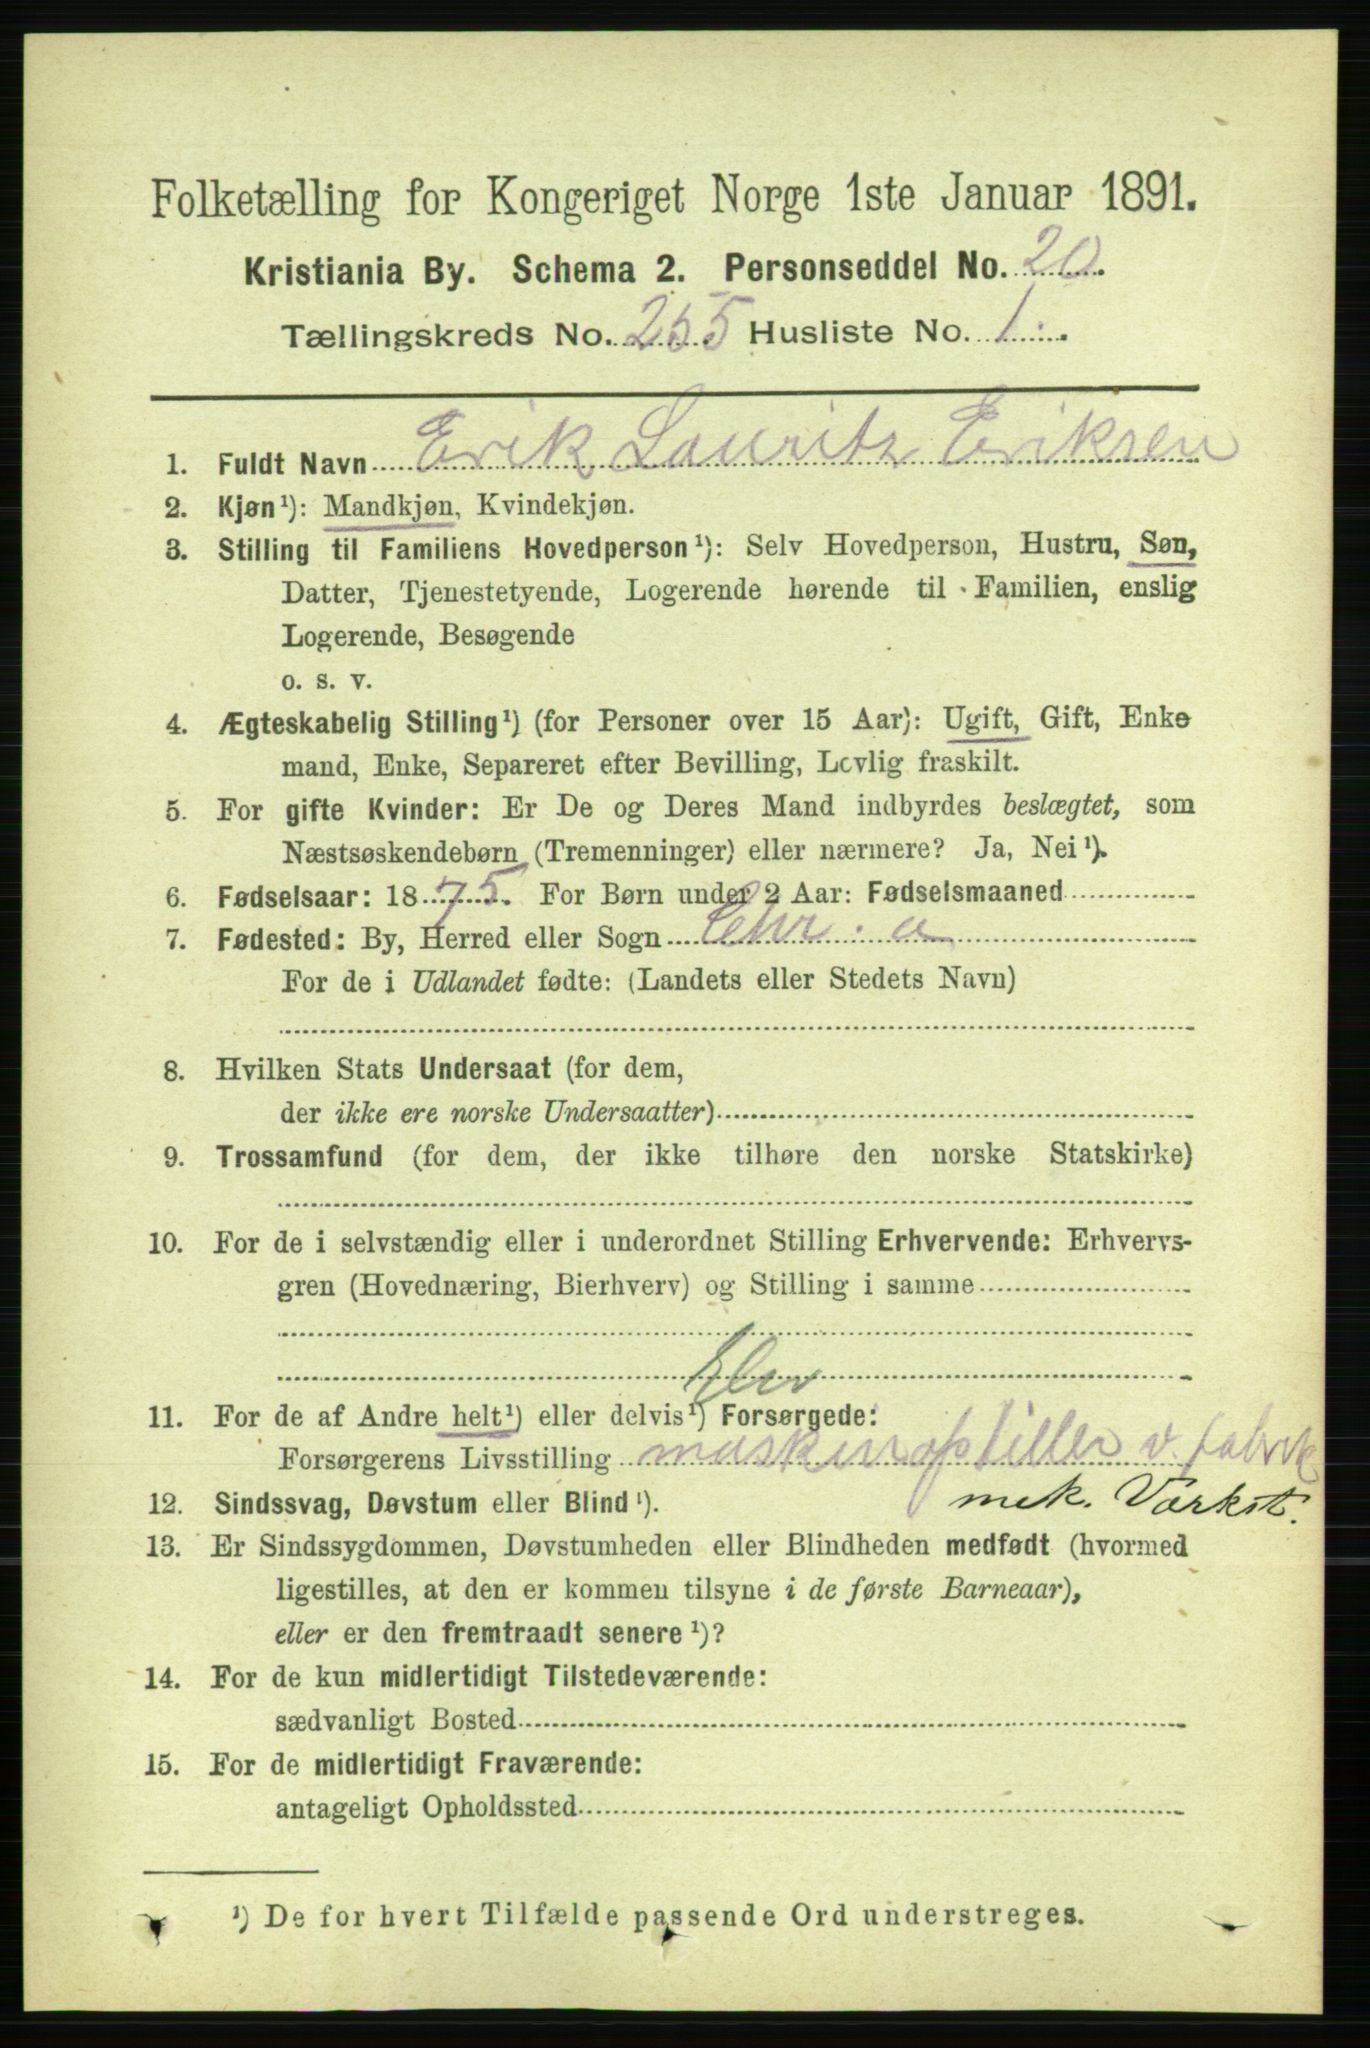 Folketælling for Kongeriget Norge 1ste Januar 1891.
Kristiania By. Schema 2. Personseddel No. 20.
Tællingskreds No. 255 Husliste No. 1.
1. Fuldt Navn Erik Lauritz Eriksen
2. Kjøn¹): Mandkjøn, Kvindekjøn.
3. Stilling til Familiens Hovedperson¹): Selv Hovedperson, Hustru, Søn,
Datter, Tjenestetyende, Logerende hørende til Familien, enslig
Logerende, Besøgende
o. s. v.
4. Ægteskabelig Stilling¹) (for Personer over 15 Aar): Ugift, Gift, Enke
mand, Enke, Separeret efter Bevilling, Lovlig fraskilt.
5. For gifte Kvinder: Er De og Deres Mand indbyrdes beslægtet, som
Næstsøskendebørn (Tremenninger) eller nærmere? Ja, Nei¹).
6. Fødselsaar: 1875. For Børn under 2 Aar: Fødselsmaaned
7. Fødested: By, Herred eller Sogn Chr. a
For de i Udlandet fødte: (Landets eller Stedets Navn)
8. Hvilken Stats Undersaat (for dem,
der ikke ere norske Undersaatter)
9. Trossamfund (for dem, der ikke tilhøre den norske Statskirke)
10. For de i selvstændig eller i underordnet Stilling Erhvervende: Erhvervs-
gren (Hovednæring, Bierhverv) og Stilling i samme
Elev
11. For de af Andre helt¹) eller delvis¹) Forsørgede:
Forsørgerens Livsstilling maskinopstiller v. fabrik
mek. Værkst.
12. Sindssvag, Døvstum eller Blind¹).
13. Er Sindssygdommen, Døvstumheden eller Blindheden medfødt (hvormed
ligestilles, at den er kommen tilsyne i de første Barneaar),
eller er den fremtraadt senere¹)?
14. For de kun midlertidigt Tilstedeværende:
sædvanligt Bosted
15. For de midlertidigt Fraværende:
antageligt Opholdssted
¹) De for hvert Tilfælde passende Ord understreges.